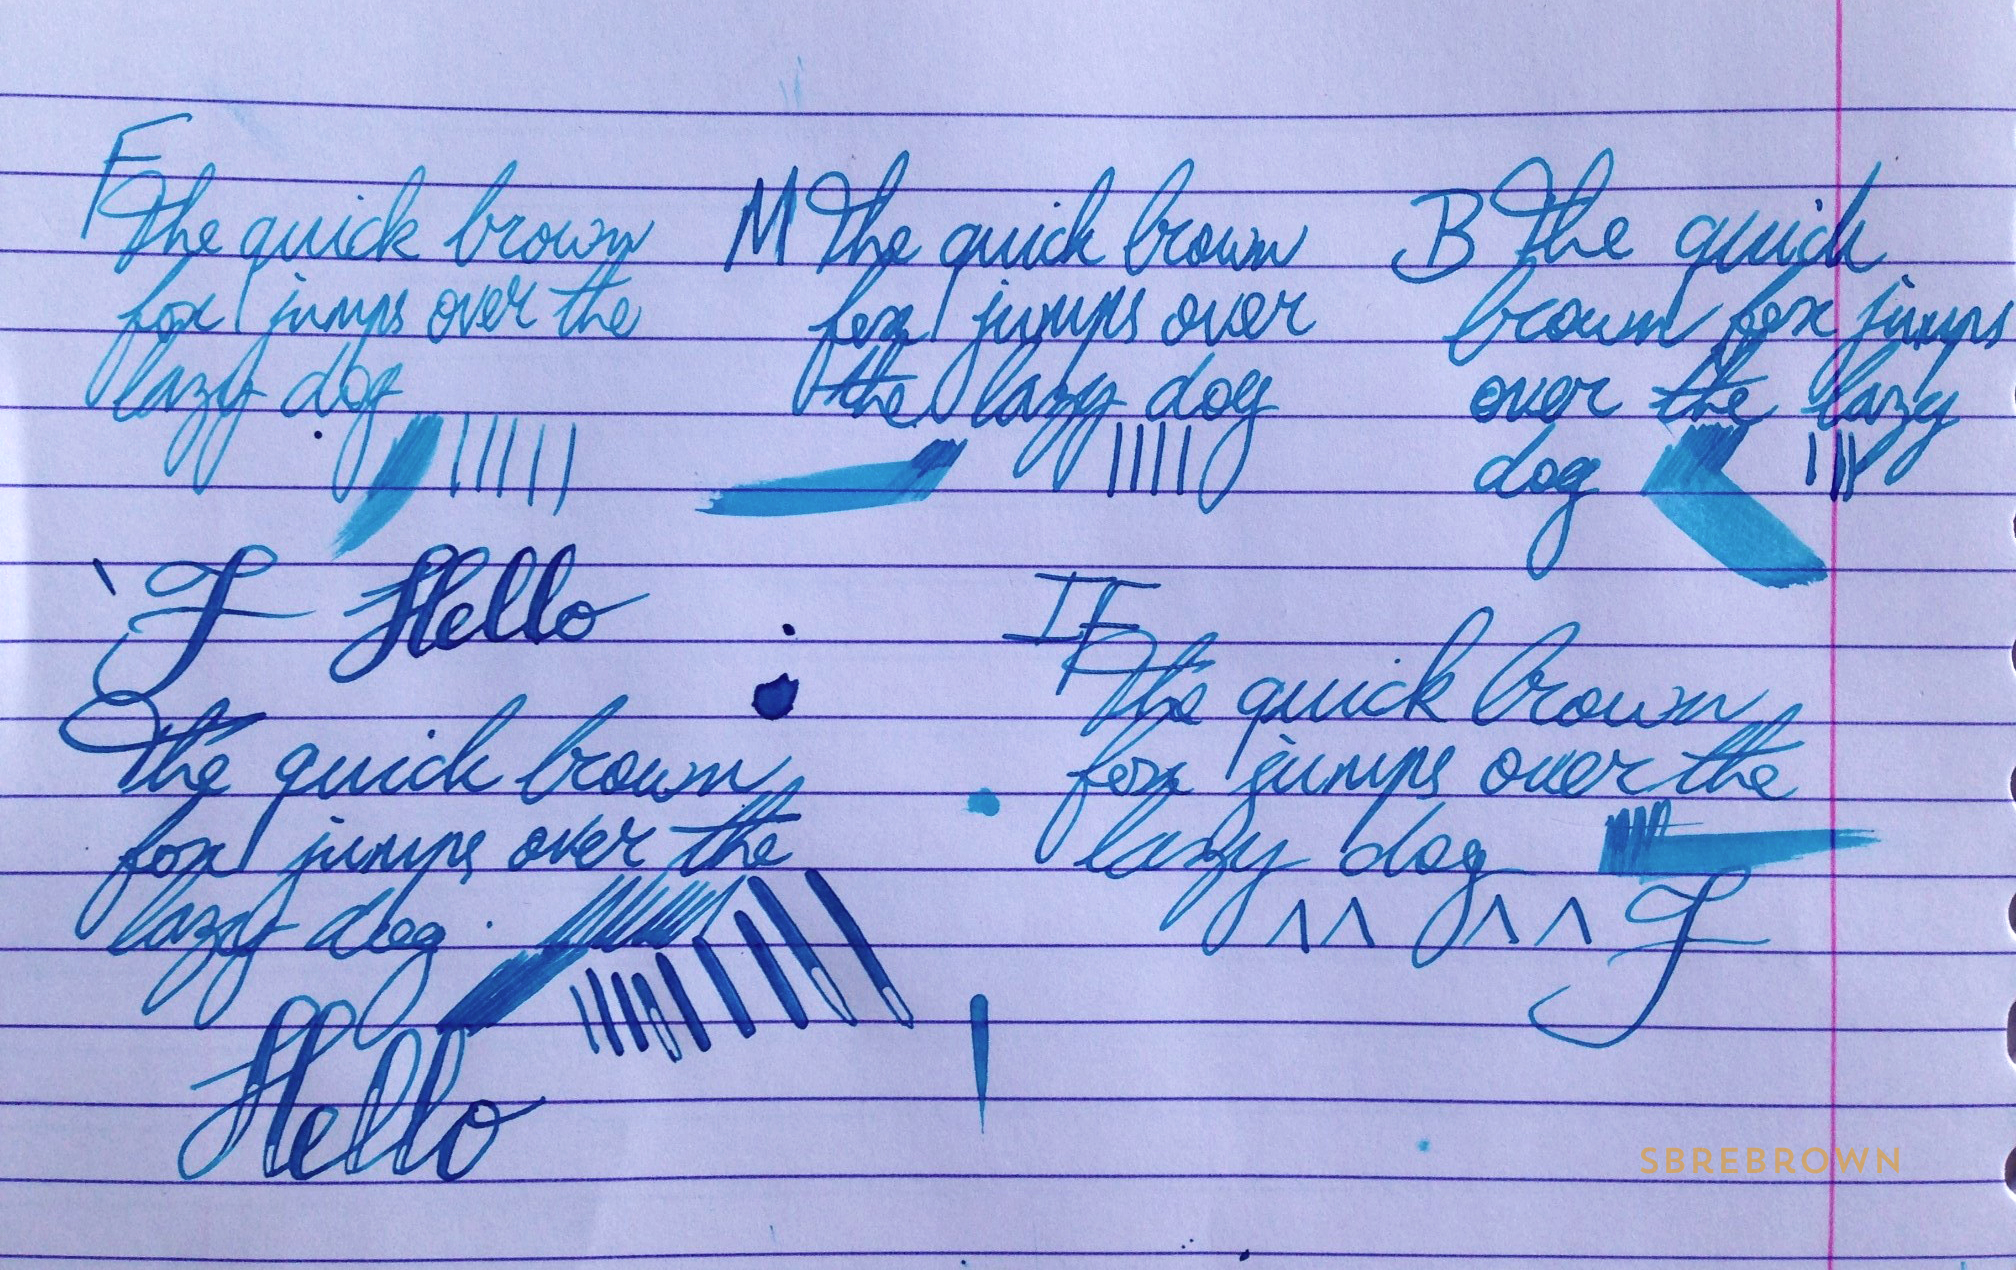 F
The quick brown
fox jumps over the
lazy dog
M The quick brown
fox jumps over
the lazy dog
B The quick
brown fox jumps
over the lazy
dog
F Hello
The quick brown
fox jumps over the
lazy dog.
Hello
IF
The quick brown
fox jumps over the
lazy dog
F
SBREBROWN